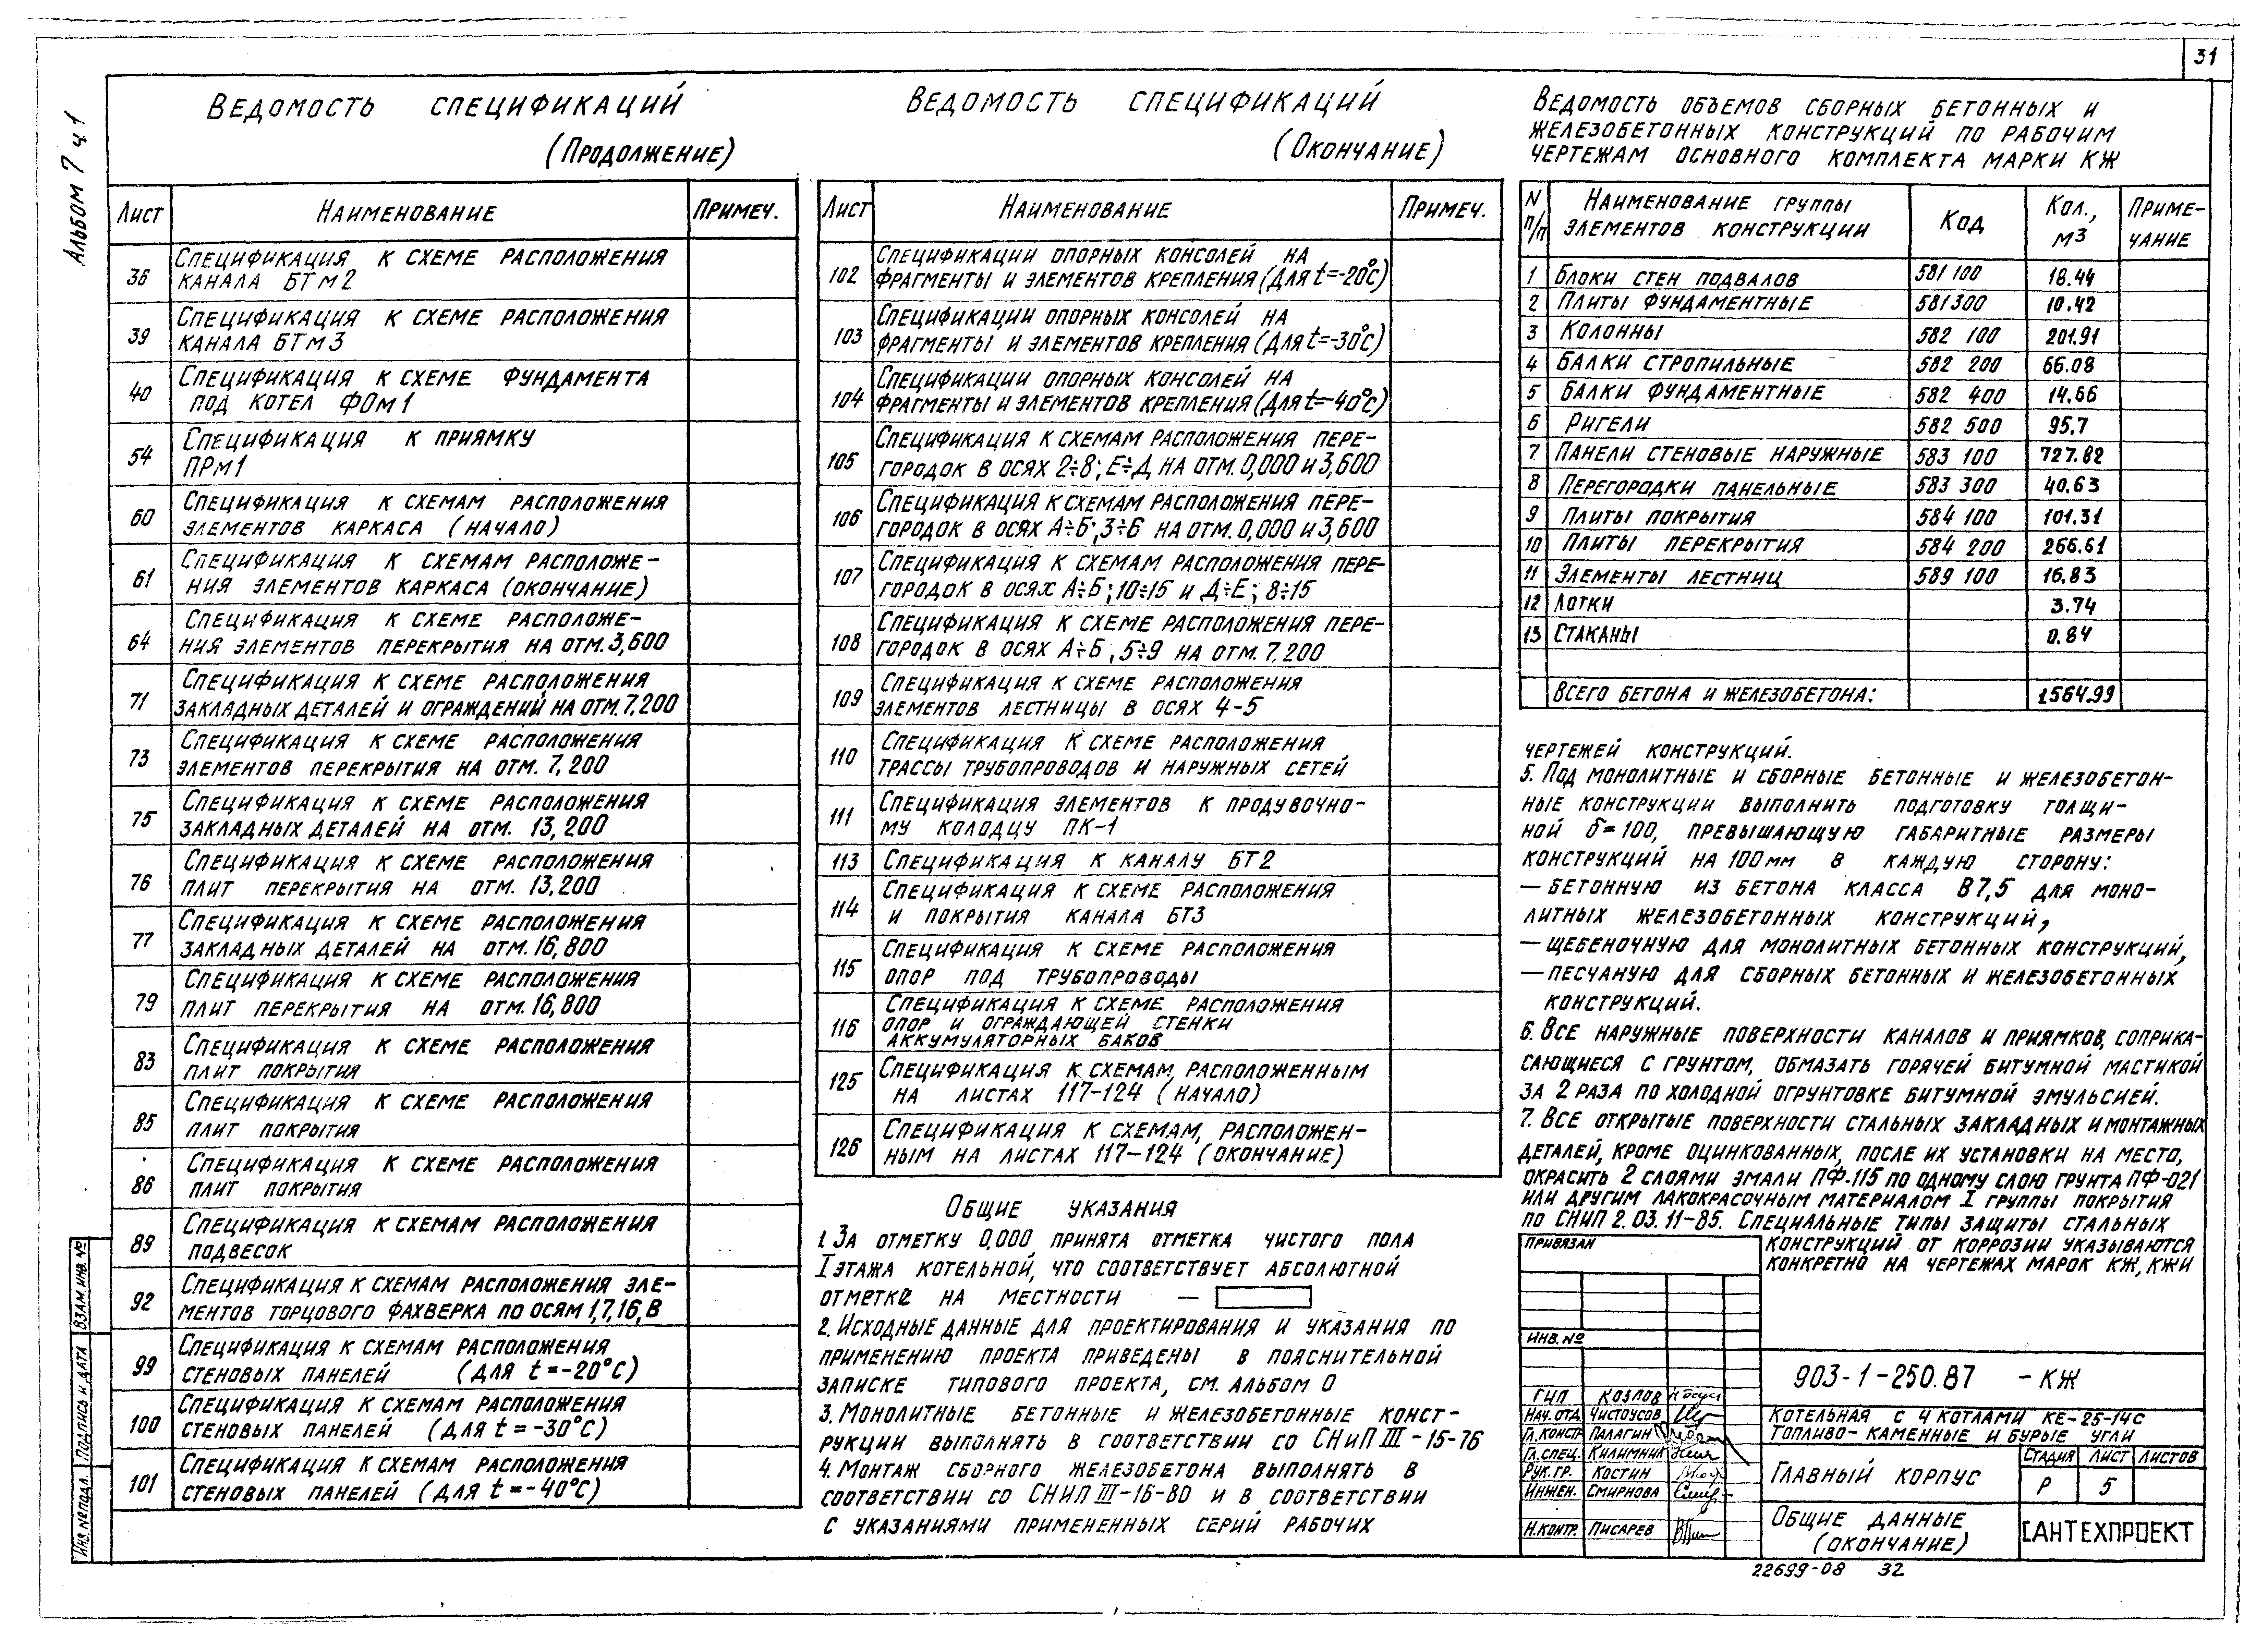 31
Альбом 7 ч.1
Ведомость спецификаций
(Продолжение)
Лист Наименование Примеч.
36 Спецификация к схеме расположения
канала БТм2
39 Спецификация к схеме расположения
канала БТм3
40 Спецификация к схеме фундамента
под котел ФОм1
54 Спецификация к приямку
ПРм1
60 Спецификация к схемам расположения
элементов каркаса (начало)
61 Спецификация к схемам расположе-
ния элементов каркаса (окончание)
64 Спецификация к схеме расположе-
ния элементов перекрытия на отм. 3,600
71 Спецификация к схеме расположения
закладных деталей и ограждений на отм. 7.200
73 Спецификация к схеме расположения
элементов перекрытия на отм. 7,200
75 Спецификация к схеме расположения
закладных деталей на отм. 13,200
76 Спецификация к схеме расположения
плит перекрытия на отм. 13,200
77 Спецификация к схеме расположения
закладных деталей на отм. 16,800
79 Спецификация к схеме расположения
плит перекрытия на отм. 16,800
83 Спецификация к схеме расположения
плит покрытия
85 Спецификация к схеме расположения
плит покрытия
86 Спецификация к схеме расположения
плит покрытия
89 Спецификация к схемам расположения
подвесок
92 Спецификация к схемам расположения эле-
ментов торцового фахверка по осям 1,7,16,В
99 Спецификация к схемам расположения
стеновых панелей (для t=-20°С)
100 Спецификация к схемам расположения
стеновых панелей (для t=-30°С)
101 Спецификация к схемам расположения
стеновых панелей (для t=-40°С)
Ведомость спецификаций
(Окончание)
Лист Наименование Примеч.
102 Спецификации опорных консолей на
фрагменты и элементов крепления (для t=-20°С)
103 Спецификации опорных консолей на
фрагменты и элементов крепления (для t=-30°С)
104 Спецификации опорных консолей на
фрагменты и элементов крепления (для t=-40°С)
105 Спецификация к схемам расположения пере-
городок в осях 2÷8; Е÷Д на отм. 0,000 и 3,600
106 Спецификация к схемам расположения пере-
городок в осях А÷Б; 3÷6 на отм. 0,000 и 3,600
107 Спецификация к схемам расположения пере-
городок в осях А÷Б; 10÷15 и Д÷Е; 8÷15
108 Спецификация к схеме расположения пере-
городок в осях А÷Б, 5÷9 на отм. 7.200
109 Спецификация к схеме расположения
элементов лестницы в осях 4-5
110 Спецификация к схеме расположения
трассы трубопроводов и наружных сетей
111 Спецификация элементов к продувочно-
му колодцу ПК-1
113 Спецификация к каналу БТ2
114 Спецификация к схеме расположения
и покрытия канала БТ3
115 Спецификация к схеме расположения
опор под трубопроводы
116 Спецификация к схеме расположения
опор и ограждающей стенки
аккумуляторных баков
125 Спецификация к схемам, расположенным
на листах 117-124 (начало)
126 Спецификация к схемам, расположен-
ным на листах 117-124 (окончание)
Общие указания
1. За отметку 0.000 принята отметка чистого пола
I этажа котельной, что соответствует абсолютной
отметке на местности —
2. Исходные данные для проектирования и указания по
применению проекта приведены в пояснительной
записке типового проекта, см. альбом 0
3. Монолитные бетонные и железобетонные конст-
рукции выполнять в соответствии со СНиП III-15-76
4. Монтаж сборного железобетона выполнять в
соответствии со СНиП III-16-80 и в соответствии
с указаниями примененных серий рабочих
Ведомость объемов сборных бетонных и
железобетонных конструкций по рабочим
чертежам основного комплекта марки КЖ
N п/п Наименование группы элементов конструкции Код Кол., м3 Приме-чание
1 Блоки стен подвалов 581 100 18.44
2 Плиты фундаментные 581300 10.42
3 Колонны 582 100 201.91
4 Балки стропильные 582 200 66.08
5 Балки фундаментные 582 400 14.66
6 Ригели 582 500 95.7
7 Панели стеновые наружные 583 100 727.82
8 Перегородки панельные 583 300 40.63
9 Плиты покрытия 584 100 101.31
10 Плиты перекрытия 584 200 266.61
11 Элементы лестниц 589 100 16.83
12 Лотки 3.74
13 Стаканы 0.84
Всего бетона и железобетона: 1564.99
чертежей конструкций.
5. Под монолитные и сборные бетонные и железобетон-
ные конструкции выполнить подготовку толщи-
ной δ=100, превышающую габаритные размеры
конструкций на 100мм в каждую сторону:
— бетонную из бетона класса В7,5 для моно-
литных железобетонных конструкций,
— щебеночную для монолитных бетонных конструкций,
— песчаную для сборных бетонных и железобетонных
конструкций.
6. Все наружные поверхности каналов и приямков, соприка-
сающиеся с грунтом, обмазать горячей битумной мастикой
за 2 раза по холодной огрунтовке битумной эмульсией.
7. Все открытые поверхности стальных закладных и монтажных
деталей, кроме оцинкованных, после их установки на место,
окрасить 2 слоями эмали ПФ-115 по одному слою грунта ПФ-021
или другим лакокрасочным материалом I группы покрытия
по СНиП 2.03.11-85. Специальные типы защиты стальных
конструкций от коррозии указываются
конкретно на чертежах марок КЖ, КЖИ
Привязан
Инв. №
903-1-250.87 -КЖ
Котельная с 4 котлами КЕ-25-14С
Топливо-каменные и бурые угли
ГИП Козлов
Нач. отд. Чистоусов
Гл. констр. Палагин
Гл. спец. Килимник
Рук. гр. Костин
Инжен. Смирнова
Н.контр. Писарев
Главный корпус
Стадия Лист Листов
Р 5
Общие данные
(окончание)
САНТЕХПРОЕКТ
22699-08 32
Взам. инв. №
Подпись и дата
Инв. № подл.